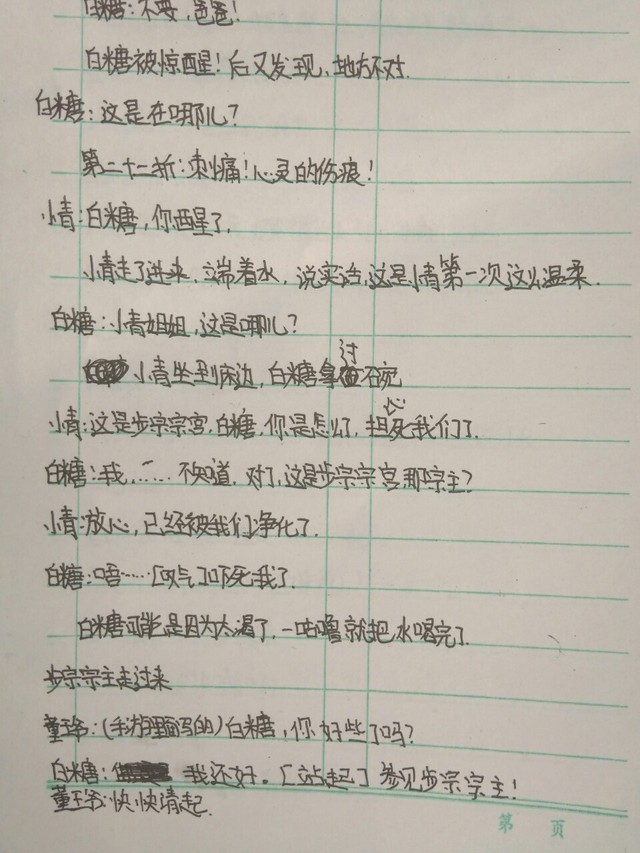 白糖：不要，爸爸！
白糖被惊醒！后又发现，地方不对.
白糖：这是在哪儿？
第二十二折：刺痛！心灵的伤痕！
小青：白糖，你醒了.
小青走了进来，端着水，说实话，这是小青第一次这么温柔.
白糖：小青姐姐，这是哪儿？
小青坐到床边，白糖拿过碗
小青：这是步宗宗宫，白糖，你是怎么了，担心死我们了.
白糖：我……不知道，对了，这是步宗宗宫那宗主？
小青：放心，已经被我们净化了.
白糖：唔……[叹气]吓死我了.
白糖可能是因为太渴了，一咕噜就把水喝完了.
步宗宗主走过来
董王爷：(手游里面写的)白糖，你好些了吗？
白糖： 我还好。[站起]参见步宗宗主！
董王爷：快快请起.
第 页